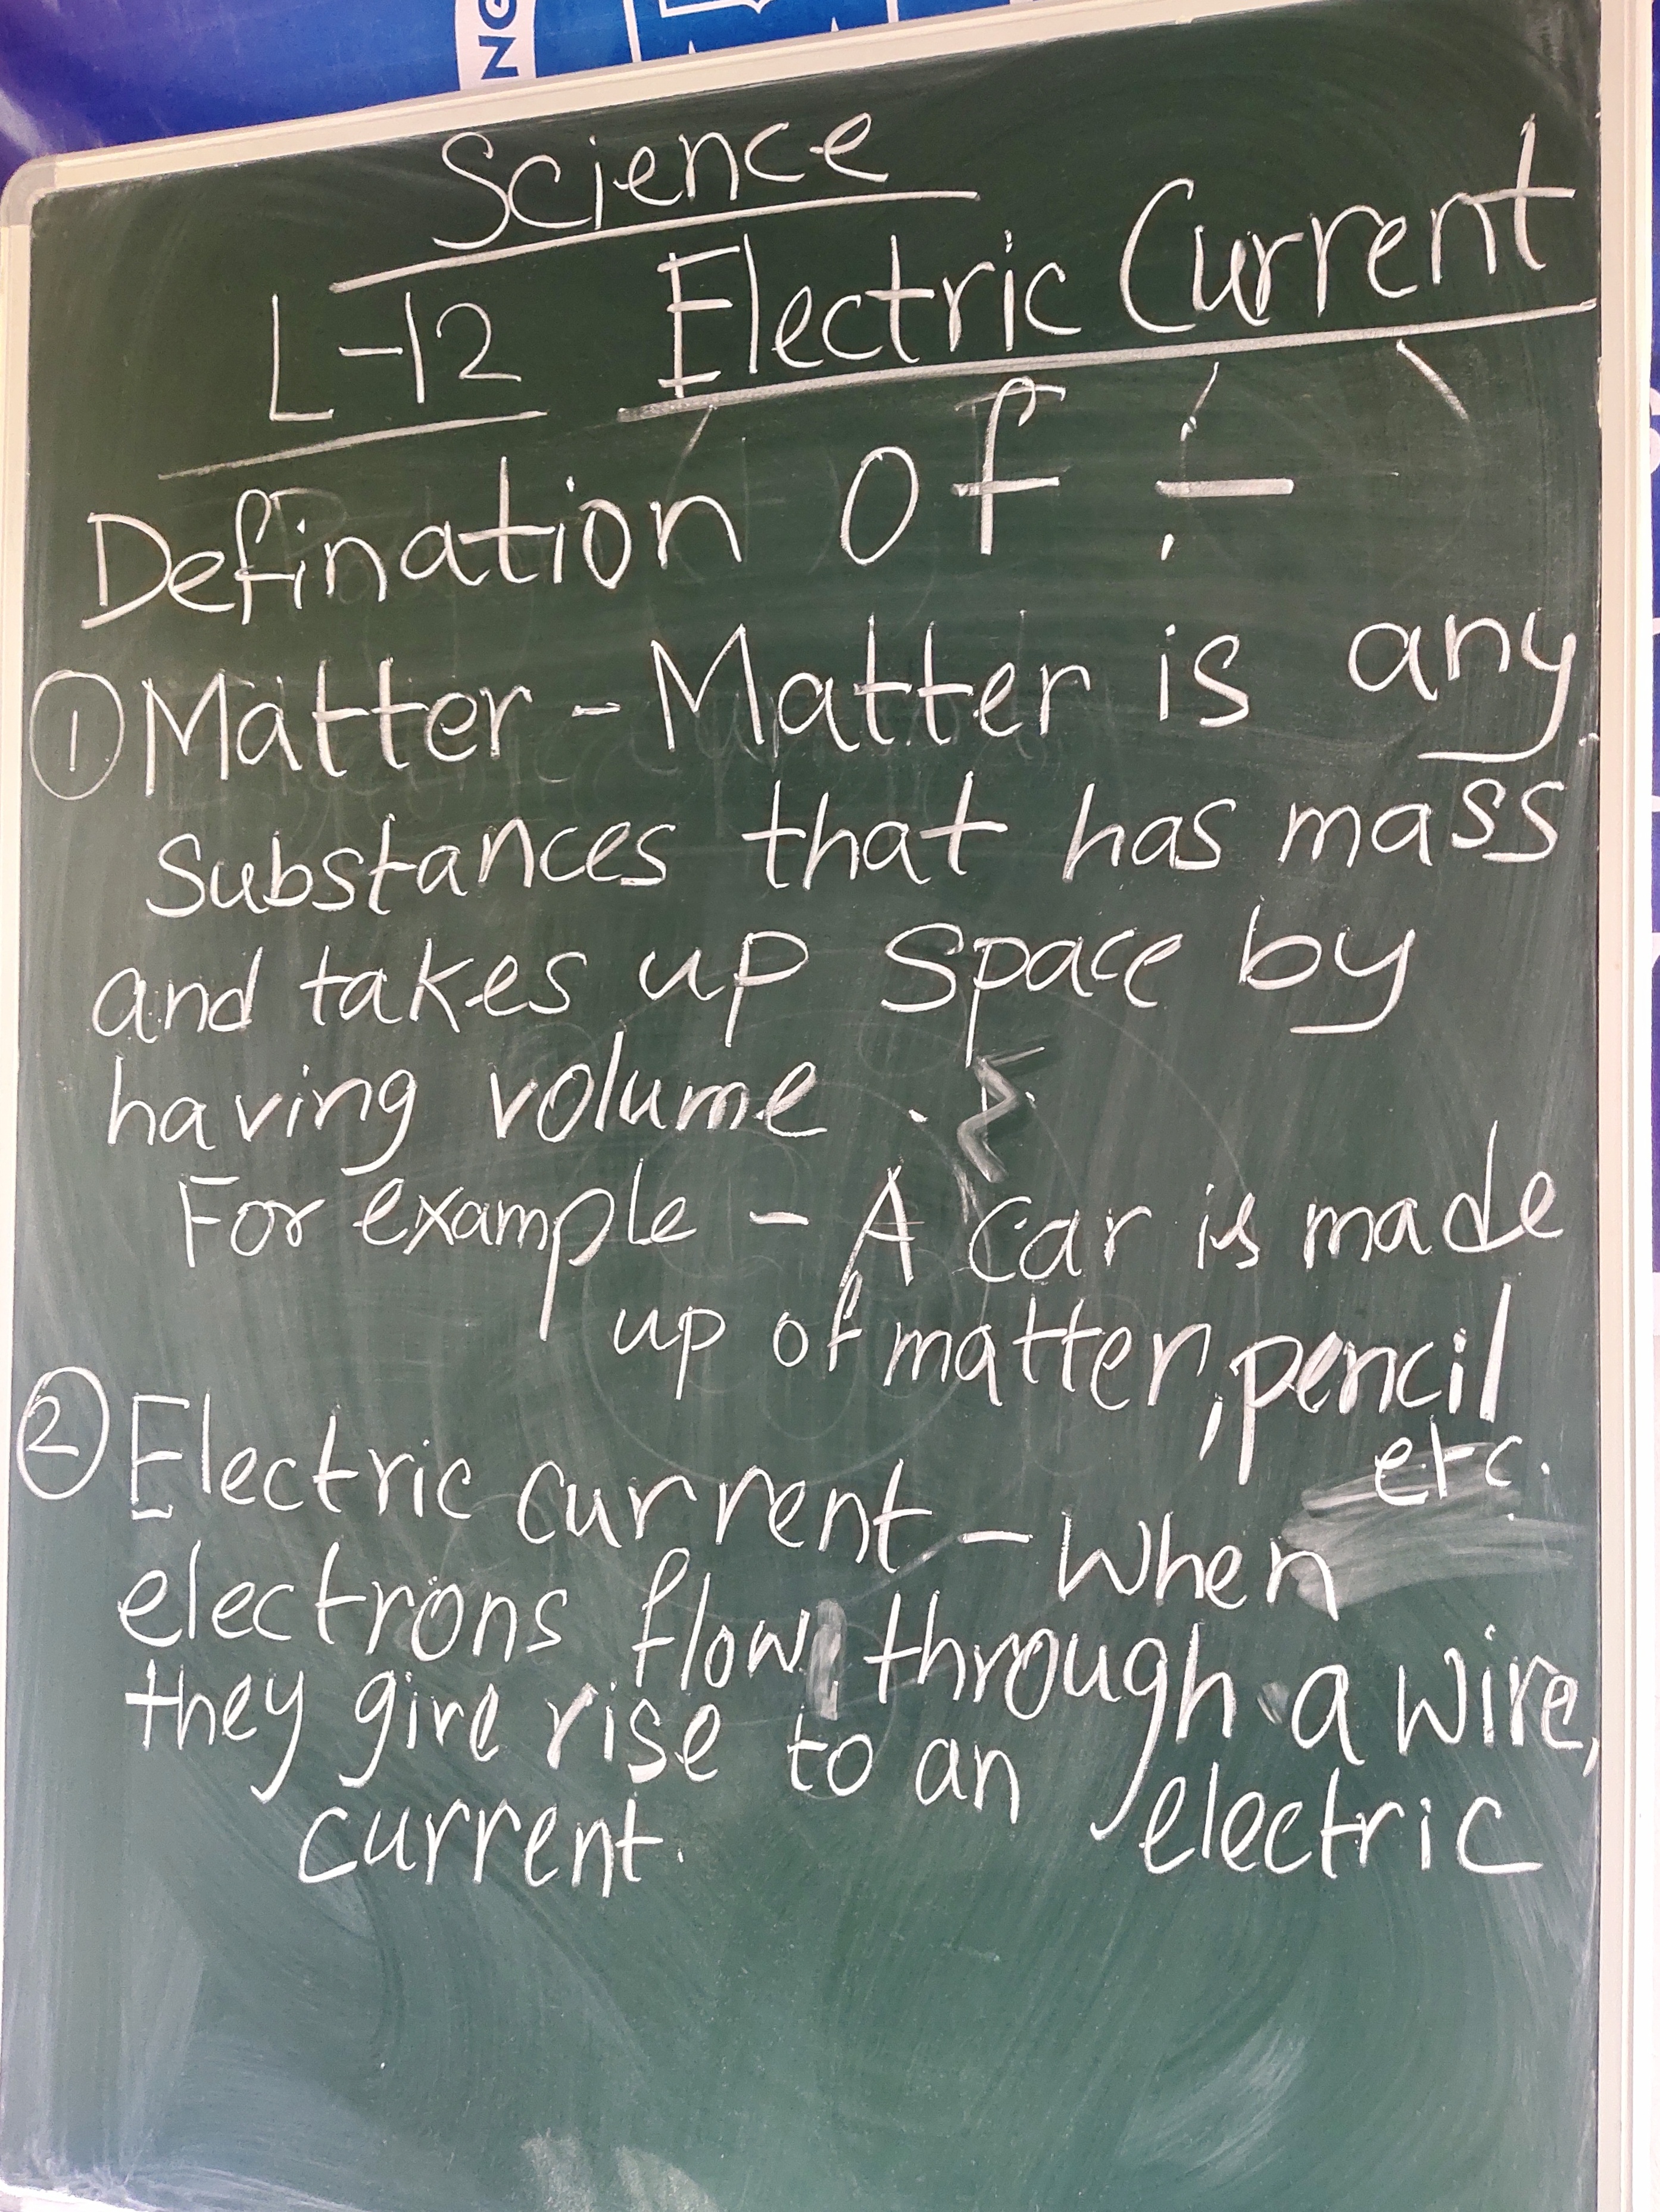 NG
Science
L-12 Electric Current
Defination Of :-
① Matter - Matter is any
Substances that has mass
and takes up space by
having volume .
For example - A car is made
up of matter, pencil
etc.
② Electric current - When
electrons flow through a wire,
they give rise to an electric
current.